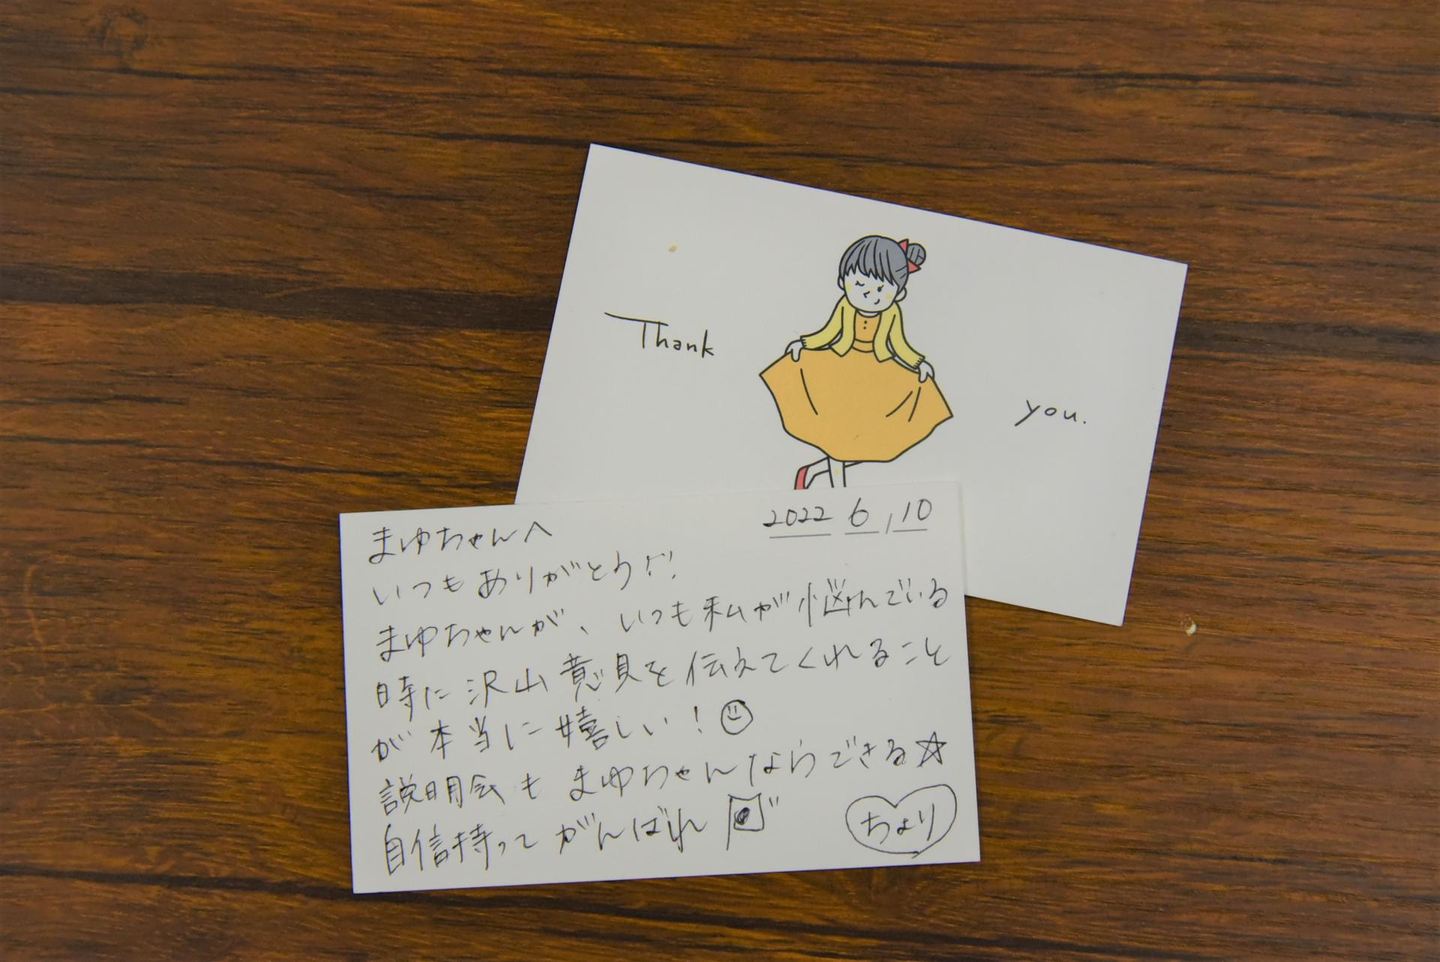 Thank you.
2022 6, 10
まゆちゃんへ
いつもありがとう!!
まゆちゃんが、いつも私が悩んでいる
時に沢山意見を伝えてくれること
が本当に嬉しい!
説明会もまゆちゃんならできる☆
自信持ってがんばれ
ちょり